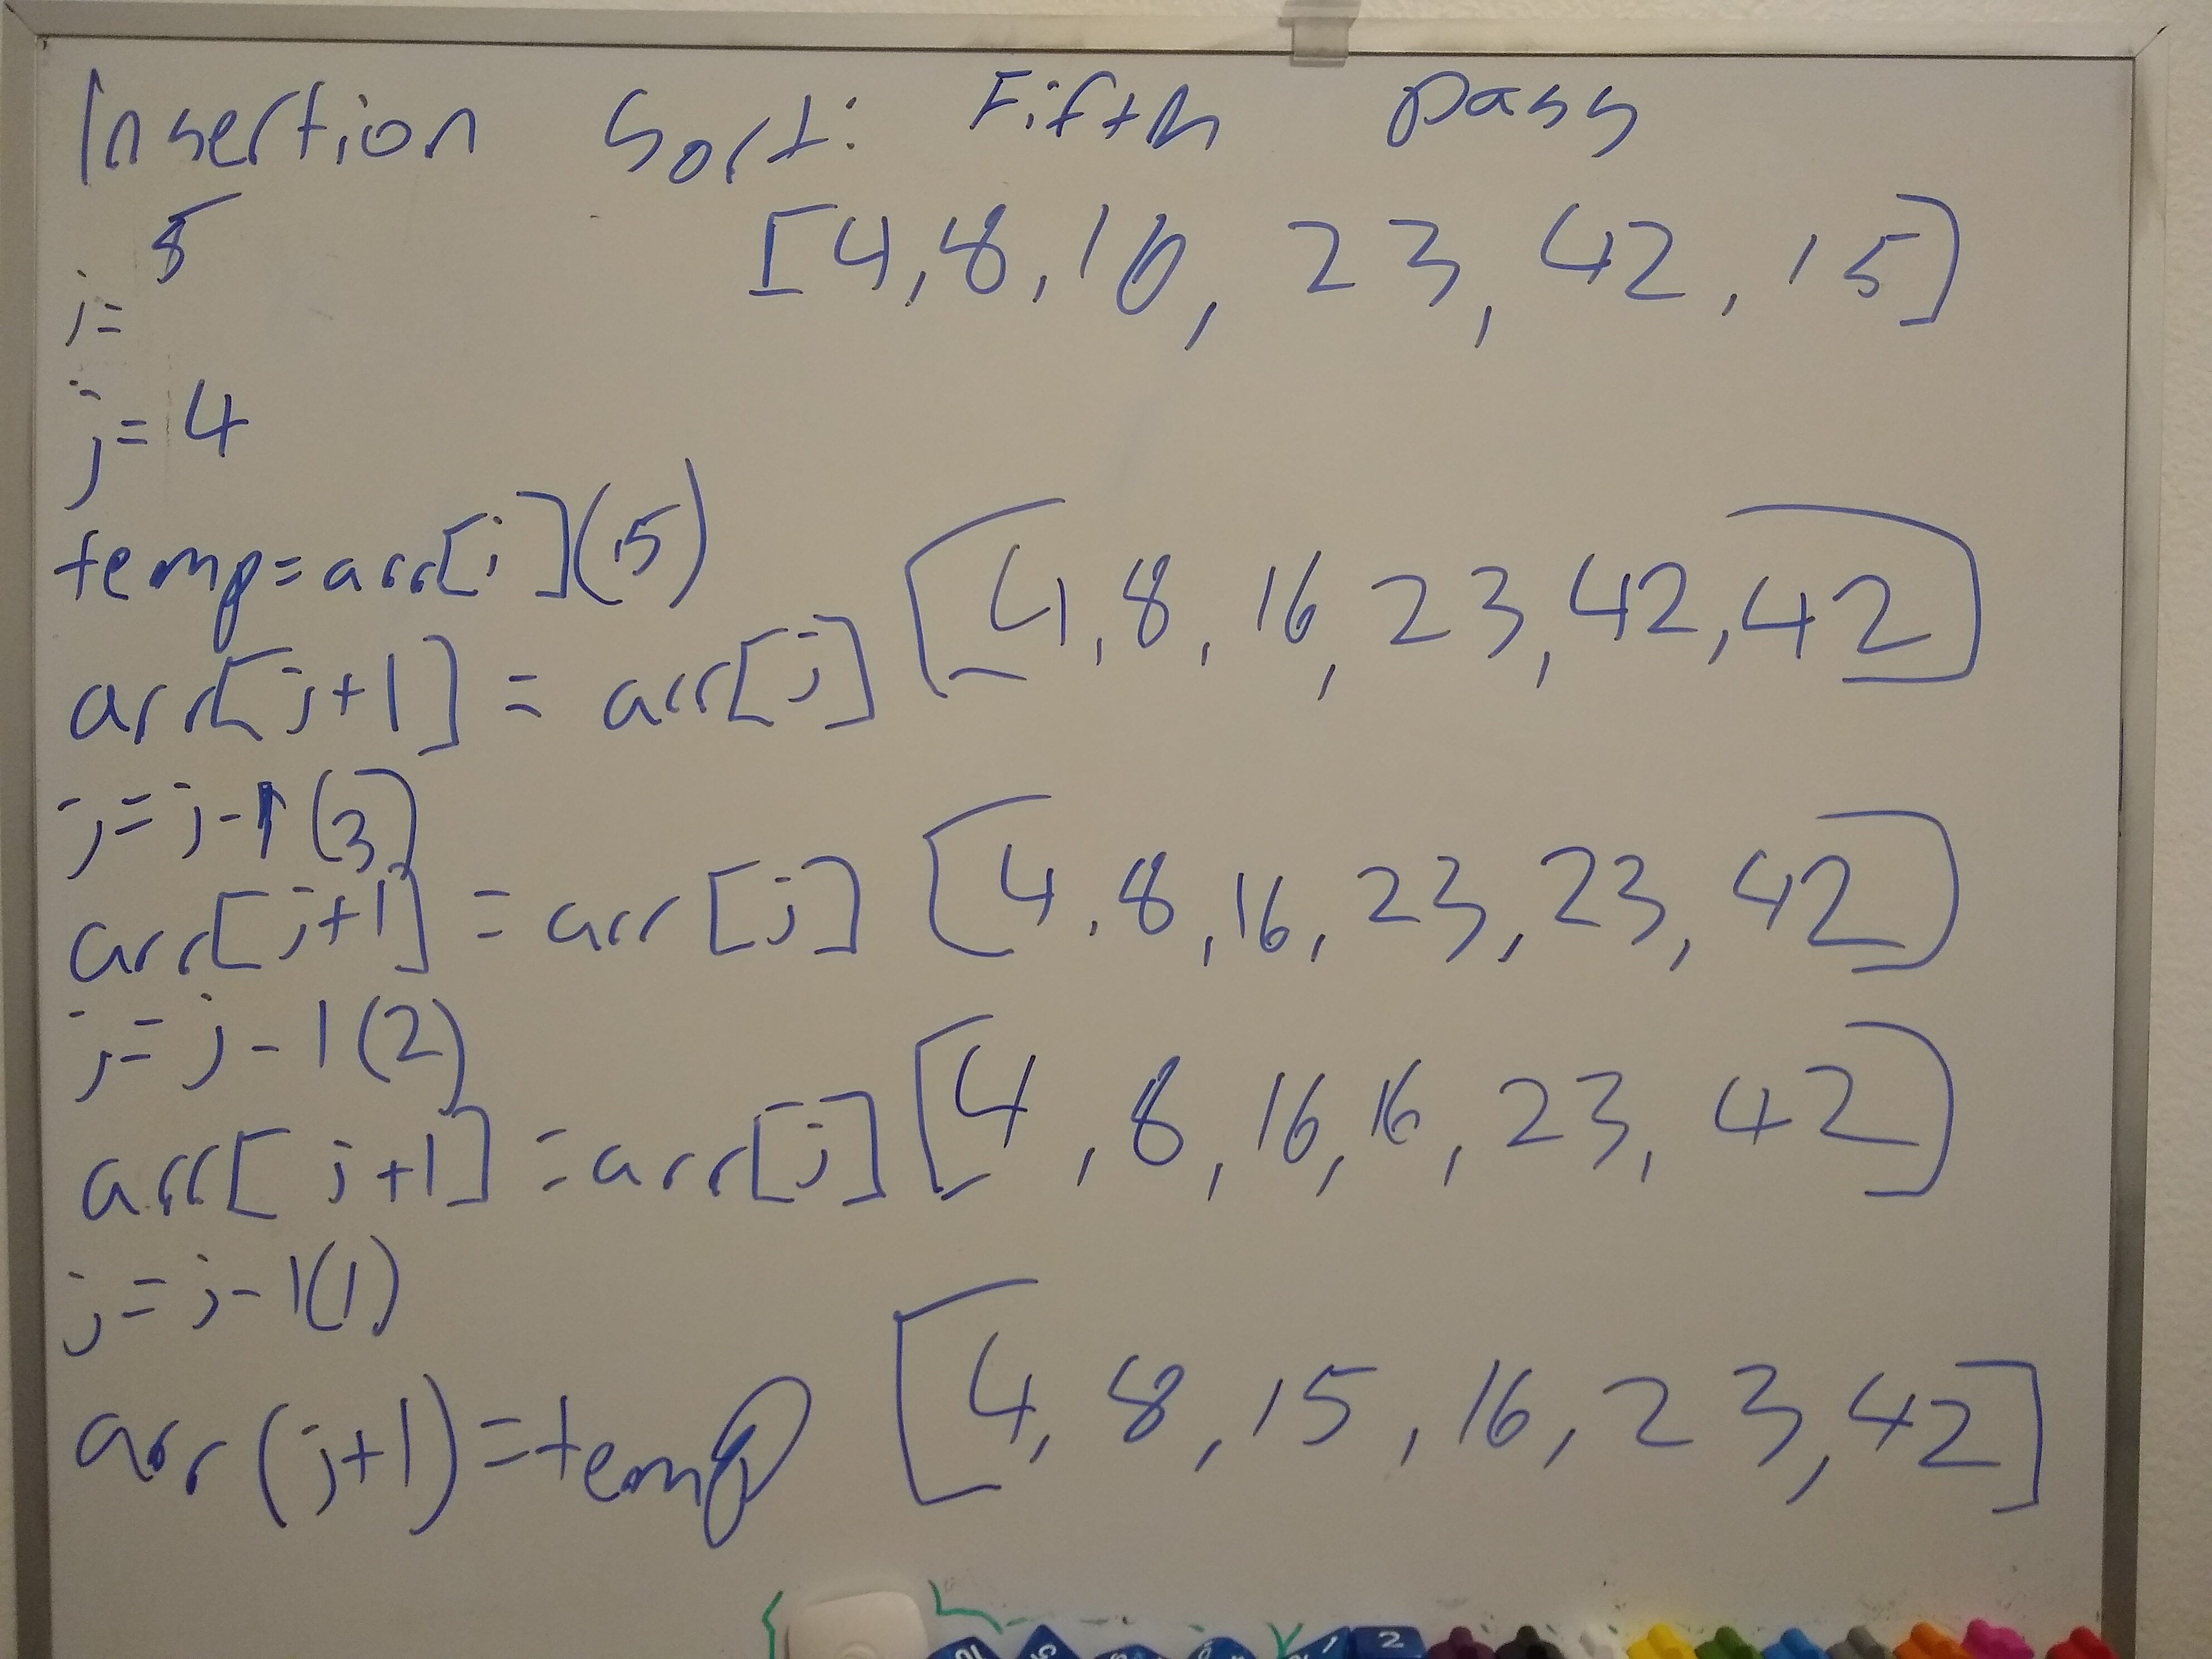 Insertion Sort: Fifth pass
i= 5 [4,8,16, 23, 42, 15]
j= 4
temp=arr[i](15)
arr[j+1] = arr[j] [4,8,16,23,42,42]
j=j-1(3)
arr[j+1] = arr[j] [4,8,16,23,23,42]
j=j-1(2)
arr[j+1]=arr[j] [4,8,16,16,23,42]
j=j-1(1)
arr(j+1)=temp [4,8,15,16,23,42]
1 2